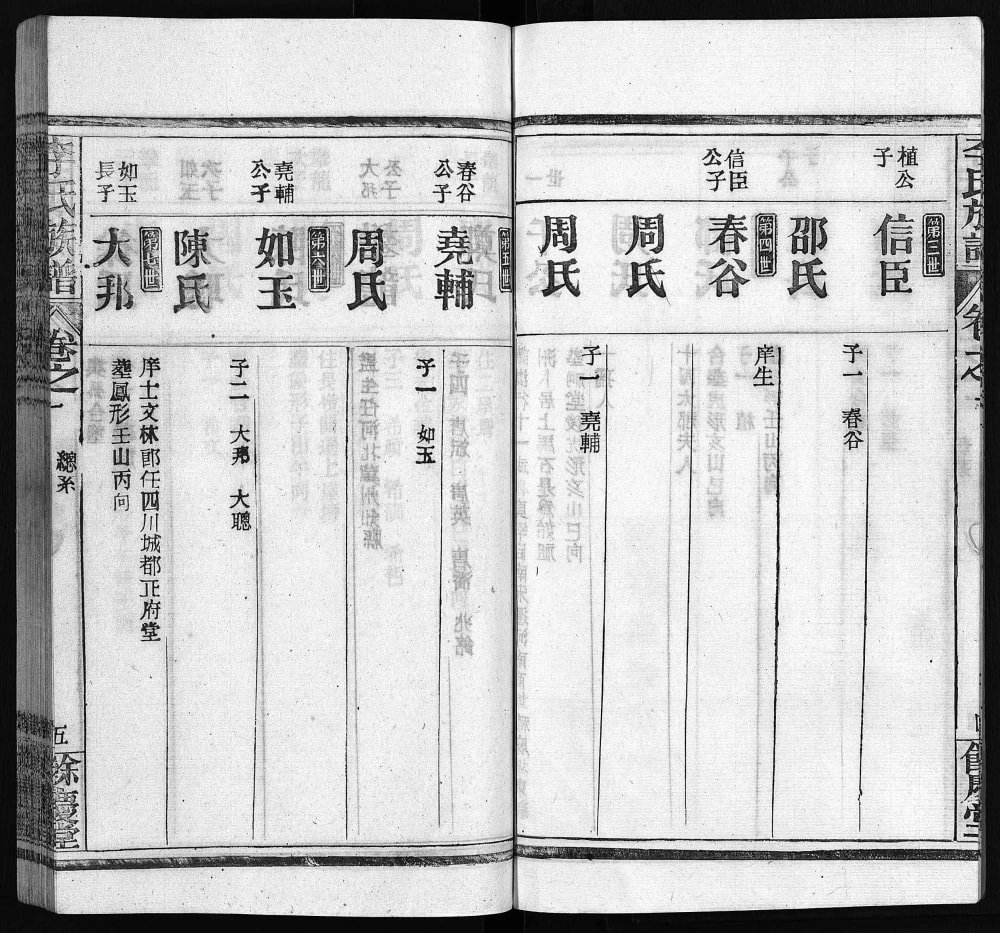 李氏族譜
卷之一
第三世
植公
子
信臣
子一 春谷
邵氏
第四世
信臣
公子
春谷
庠生
周氏
周氏
子一 堯輔
第五世
春谷
公子
堯輔
子一 如玉
周氏
第六世
堯輔
公子
如玉
子二 大邦 大聰
陳氏
第七世
如玉
長子
大邦
庠士文林郎任四川城都正府堂
塟鳳形壬山丙向
李氏族譜
卷之一
總系
五
餘慶堂